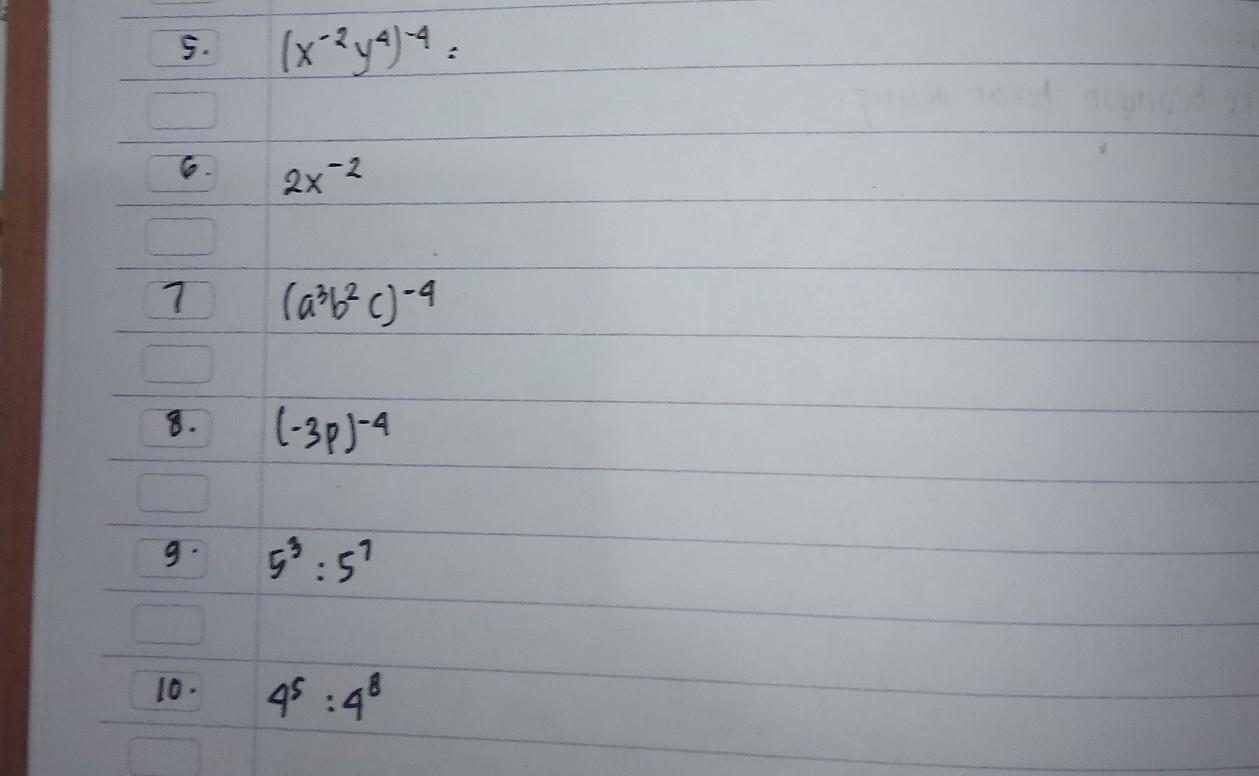 5. (x⁻²y⁴)⁻⁴ =
6. 2x⁻²
7 (a³b²c)⁻⁴
8. (-3p)⁻⁴
9. 5³ : 5⁷
10. 4⁵ : 4⁸